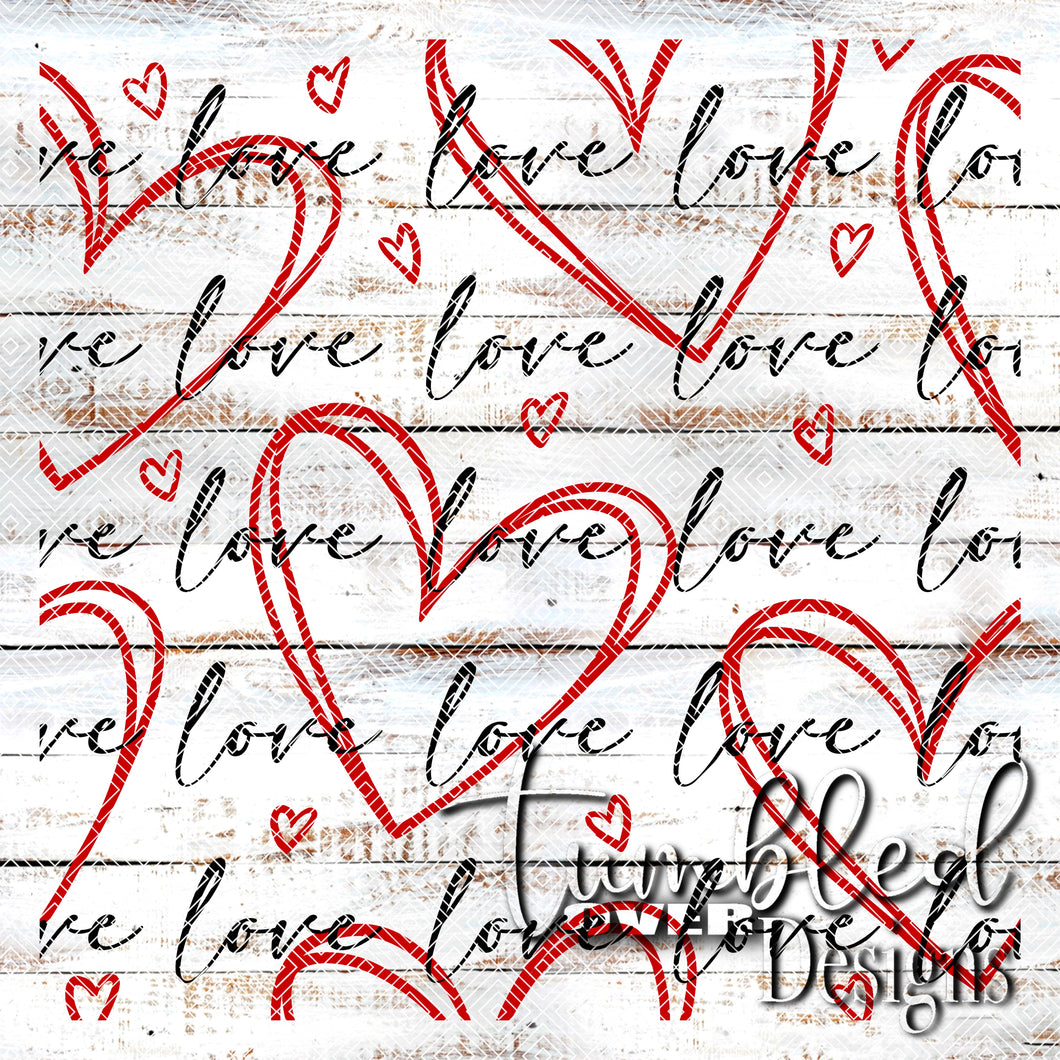 ve love love love lo
ve love love love lo
ve love love love lo
ve love love love lo
ve love love love lo
Tumbled
OVER
Designs